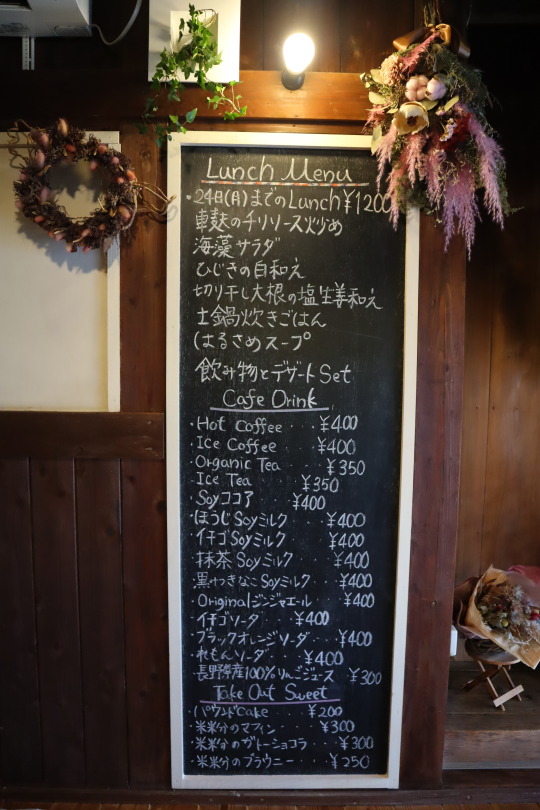 Lunch Menu
・24日(月)までのLunch ¥1200
車麩のチリソース炒め
海藻サラダ
ひじきの白和え
切り干し大根の塩生姜和え
土鍋炊きごはん
はるさめスープ
飲み物とデザートSet
Cafe Drink
・Hot Coffee ¥400
・Ice Coffee ¥400
・Organic Tea ¥350
・Ice Tea ¥350
・Soyココア ¥400
・ほうじSoyミルク ¥400
・イチゴSoyミルク ¥400
・抹茶Soyミルク ¥400
・黒みつきなこSoyミルク ¥400
・Originalジンジャエール ¥400
・イチゴソーダ ¥400
・ブラックオレンジソーダ ¥400
・れもんソーダ ¥400
・長野県産100%りんごジュース ¥300
Take Out Sweet
・パウンドCake ¥200
・米粉のマフィン ¥300
・米粉のガトーショコラ ¥300
・米粉のブラウニー ¥250